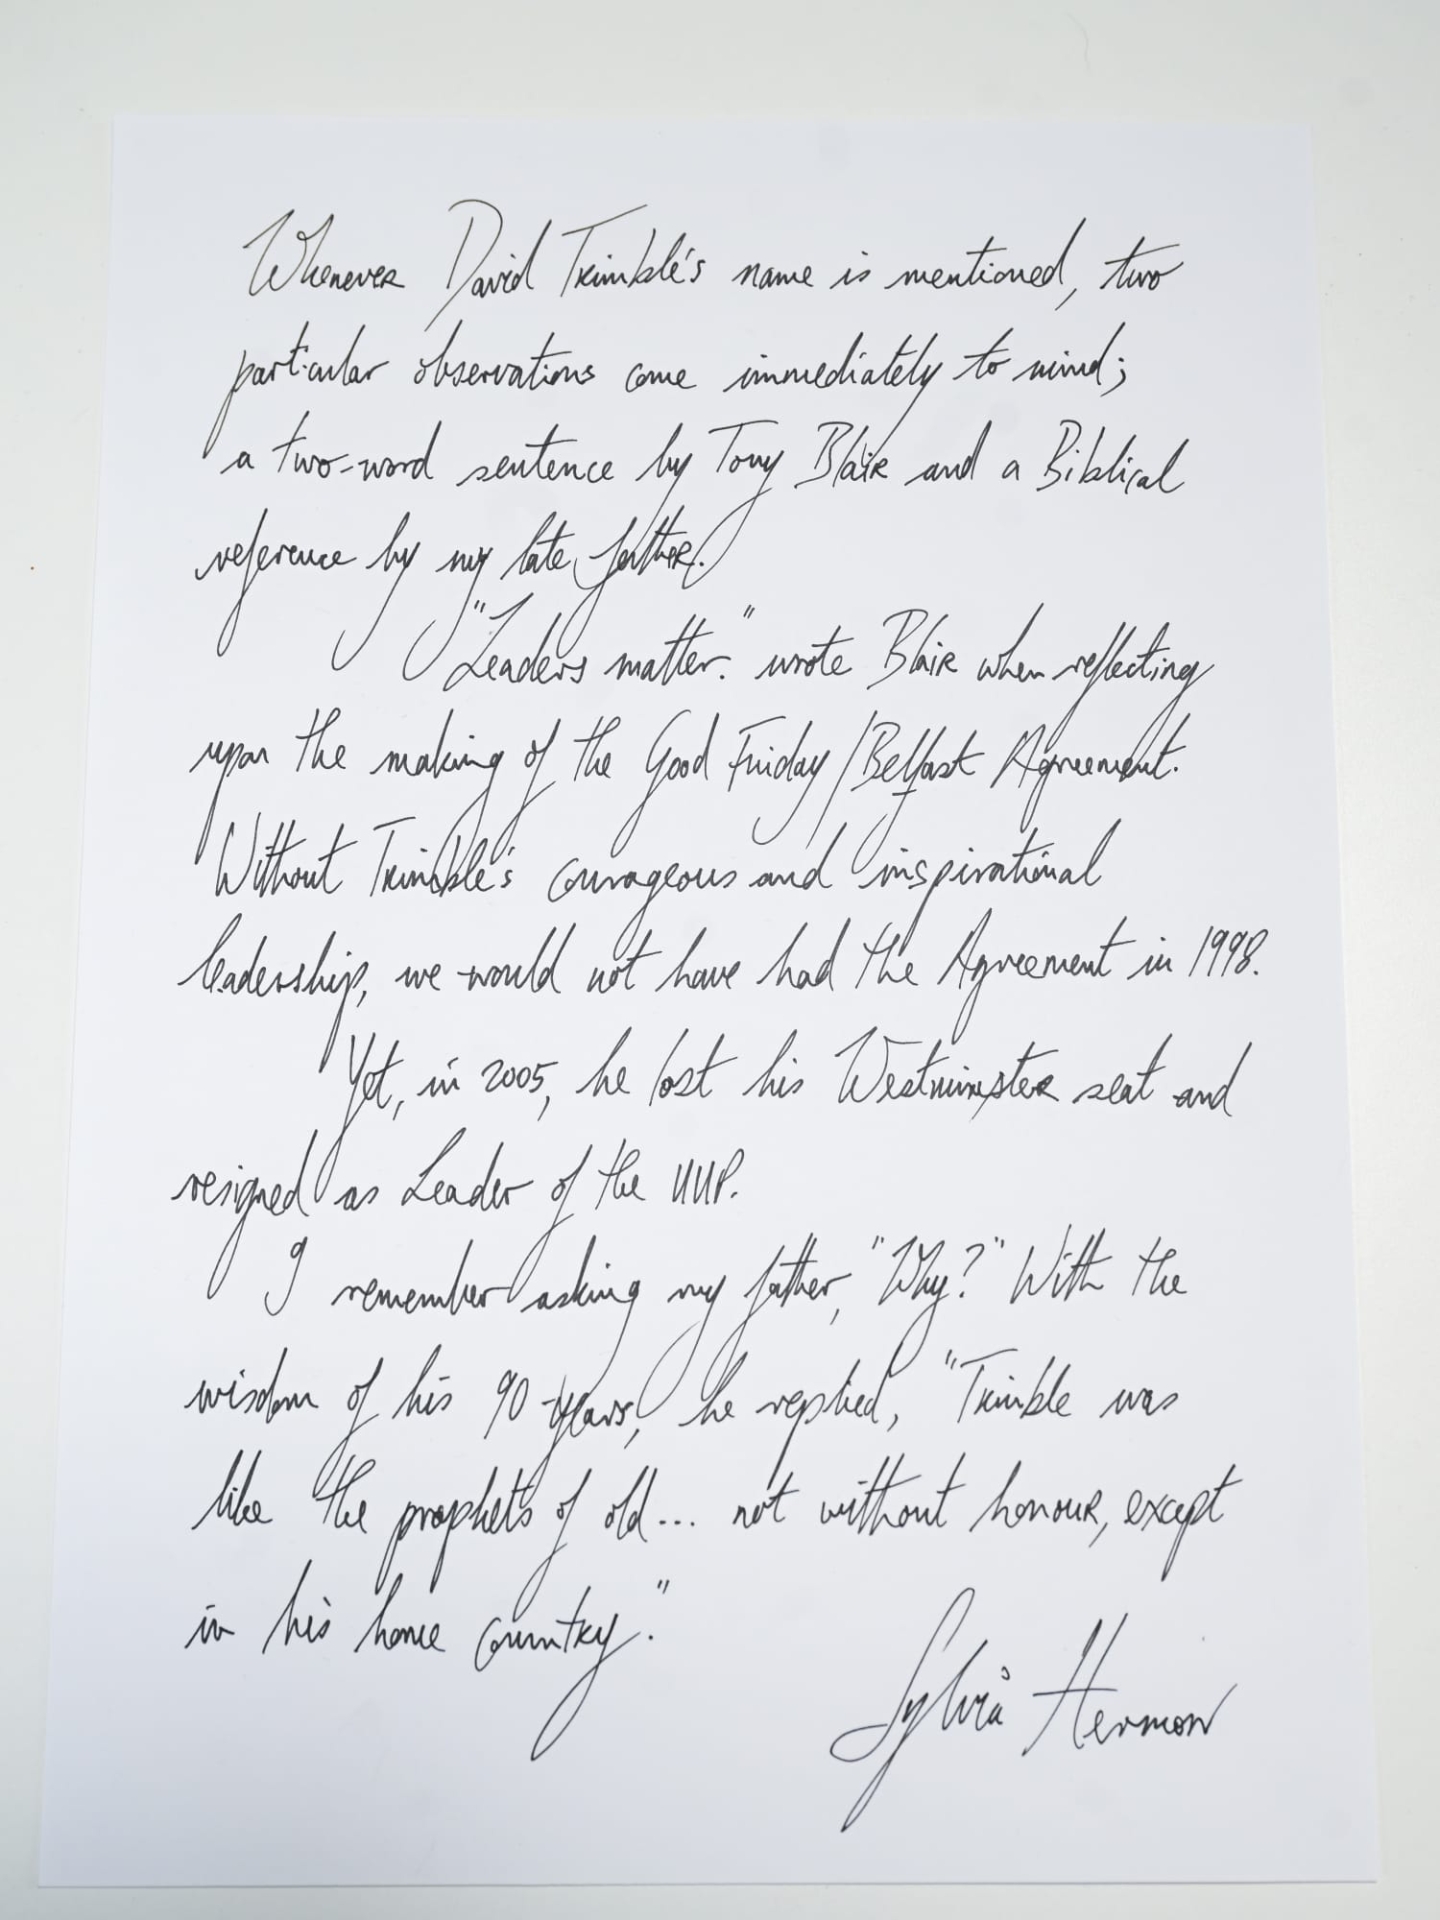 Whenever David Trimble's name is mentioned, two
particular observations come immediately to mind;
a two-word sentence by Tony Blair and a Biblical
reference by my late father.
"Leaders matter." wrote Blair when reflecting
upon the making of the Good Friday/Belfast Agreement.
Without Trimble's courageous and inspirational
leadership, we would not have had the Agreement in 1998.
Yet, in 2005, he lost his Westminster seat and
resigned as Leader of the UUP.
I remember asking my father, "Why?" With the
wisdom of his 90-years, he replied, "Trimble was
like the prophets of old... not without honour, except
in his home country."
Sylvia Hermon